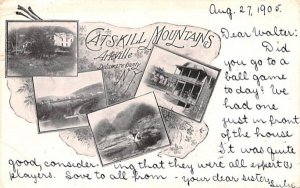 Aug. 27, 1905.
CATSKILL MOUNTAINS
Arkville
Delaware County
N.Y.
Dear Walter:
Did
you go to a
ball game
today? We
had one
just in front
of the house
It was quite
good, consider- ing that they were all expert
players. Love to all from - your dear sister